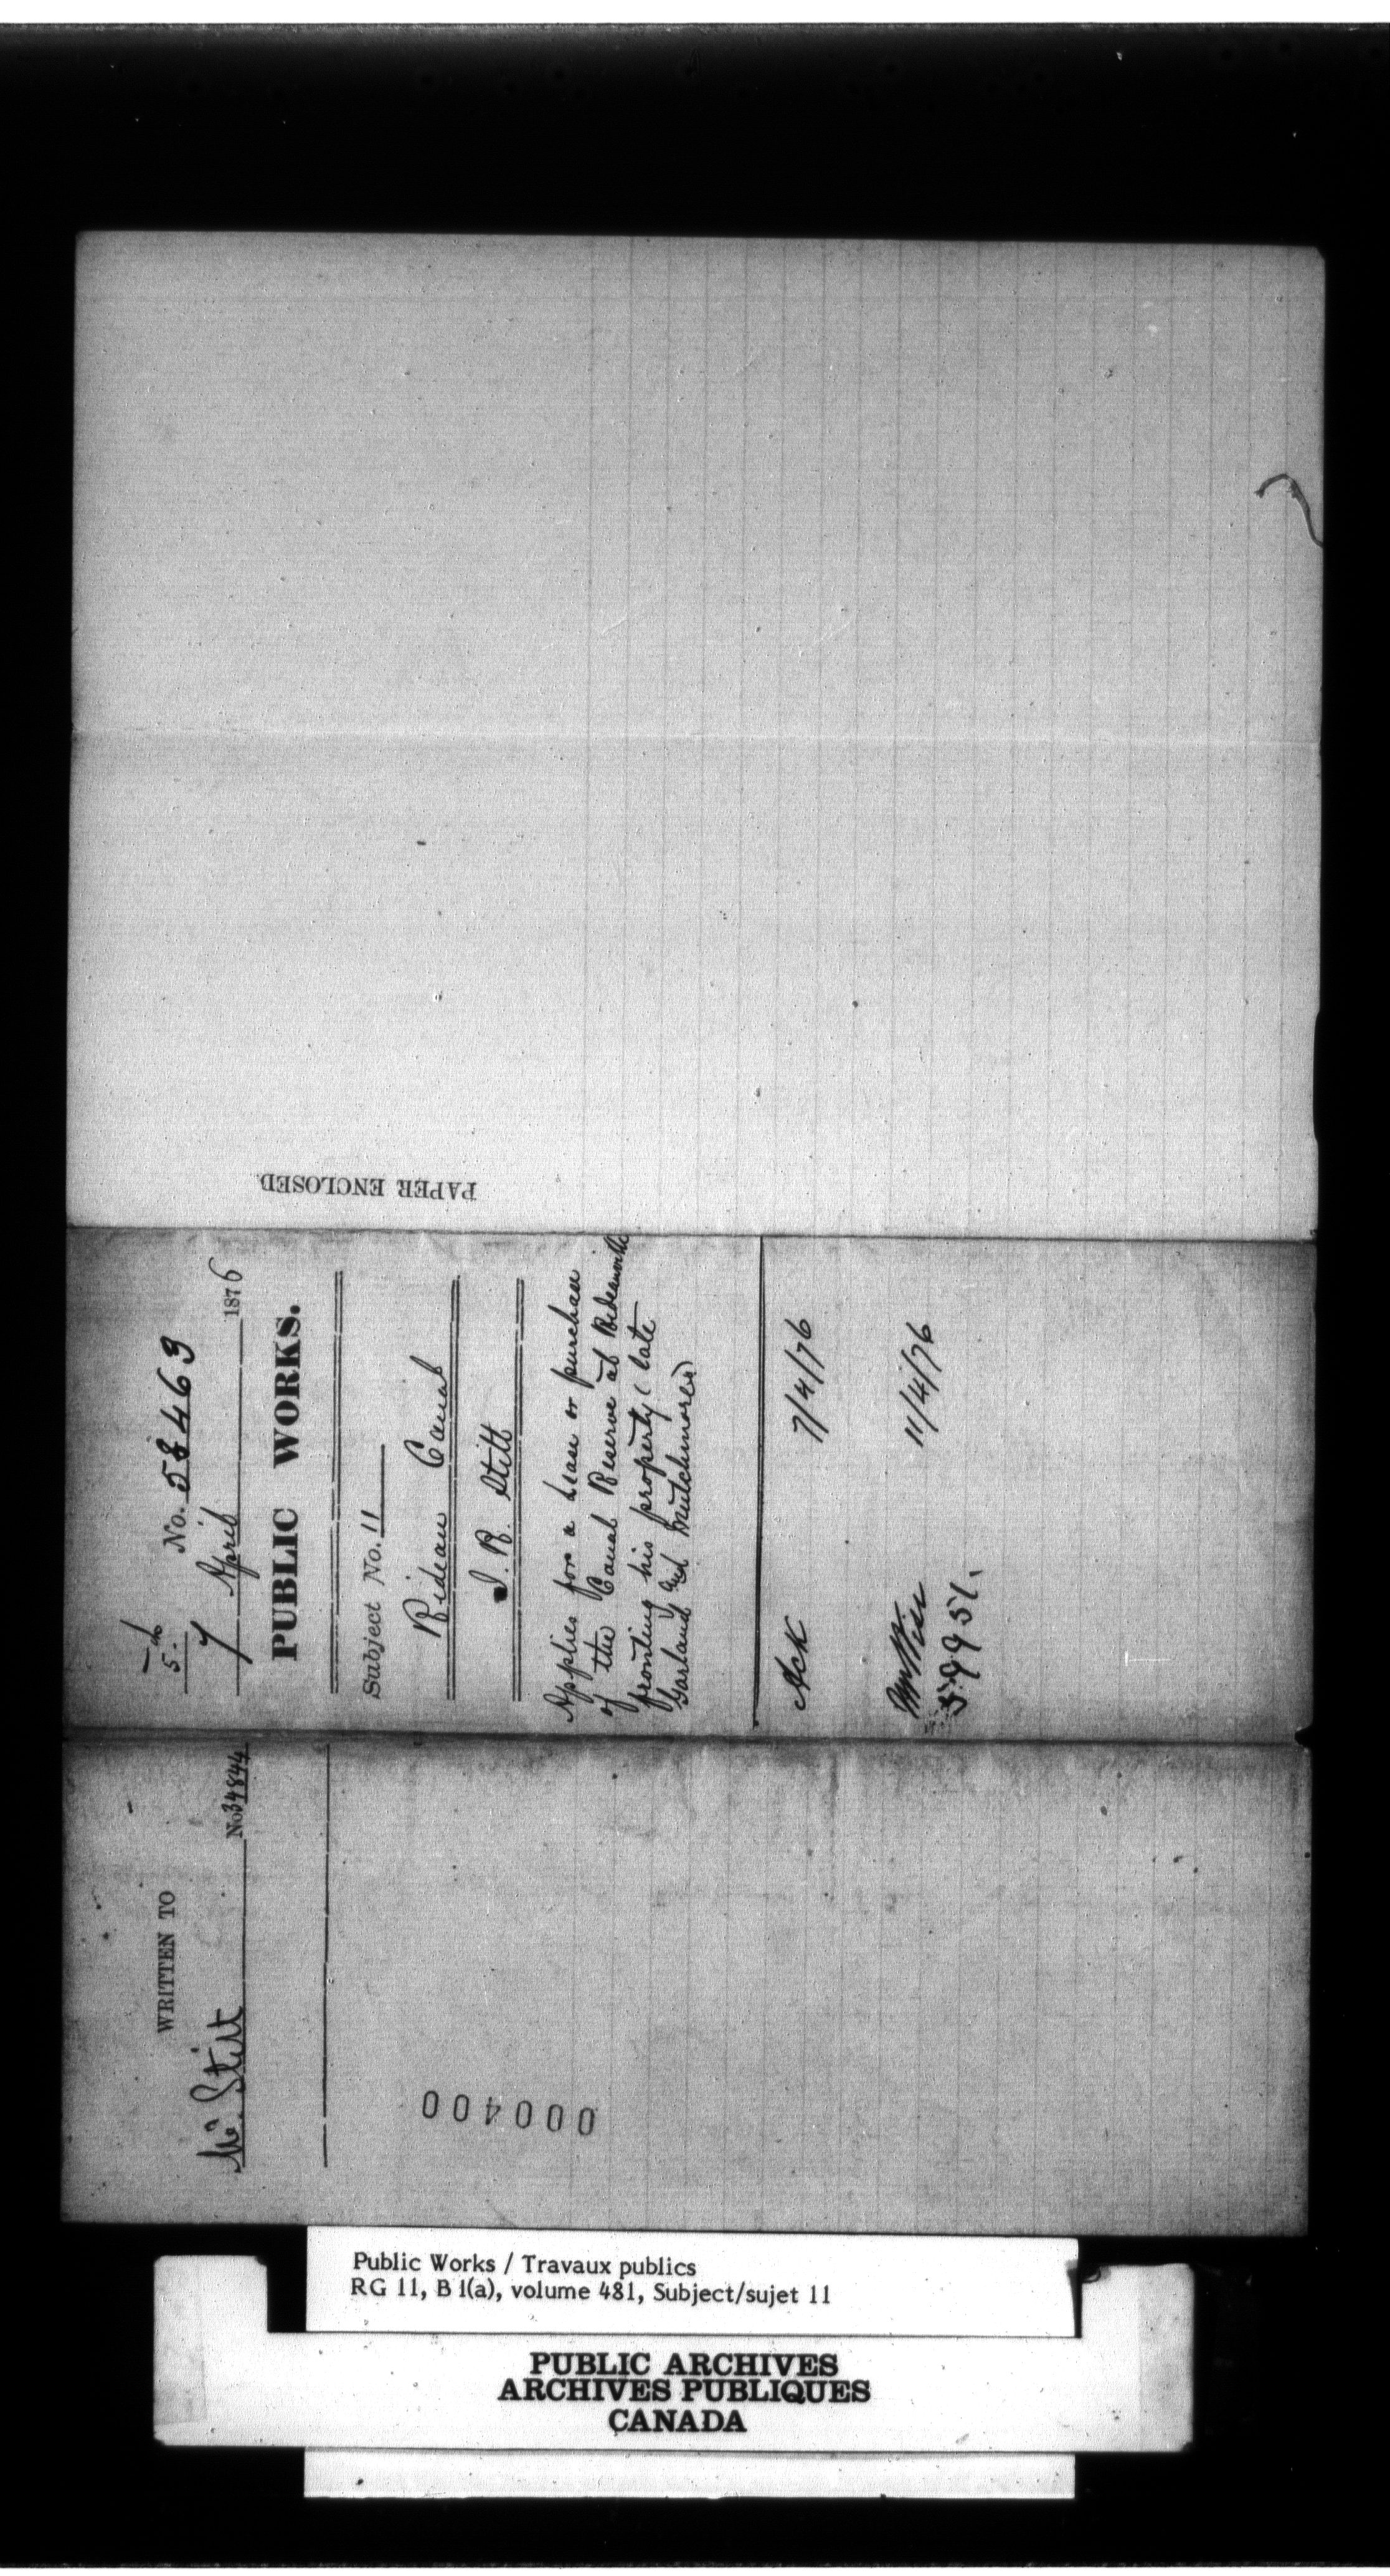 PAPER ENCLOSED.
5
No. 58463
7 April 1876
PUBLIC WORKS.
Subject No. 11
Rideau Canal
J. R. Stitt
Applies for a Lease or purchase
of the Canal Reserve at Rideauville
fronting his property (late
Garland and Mutchmores)
Ack 7/4/76
11/4/76
WRITTEN TO
Mr. Stitt No. 34844
000400
Public Works / Travaux publics
RG 11, B 1(a), volume 481, Subject/sujet 11
PUBLIC ARCHIVES
ARCHIVES PUBLIQUES
CANADA